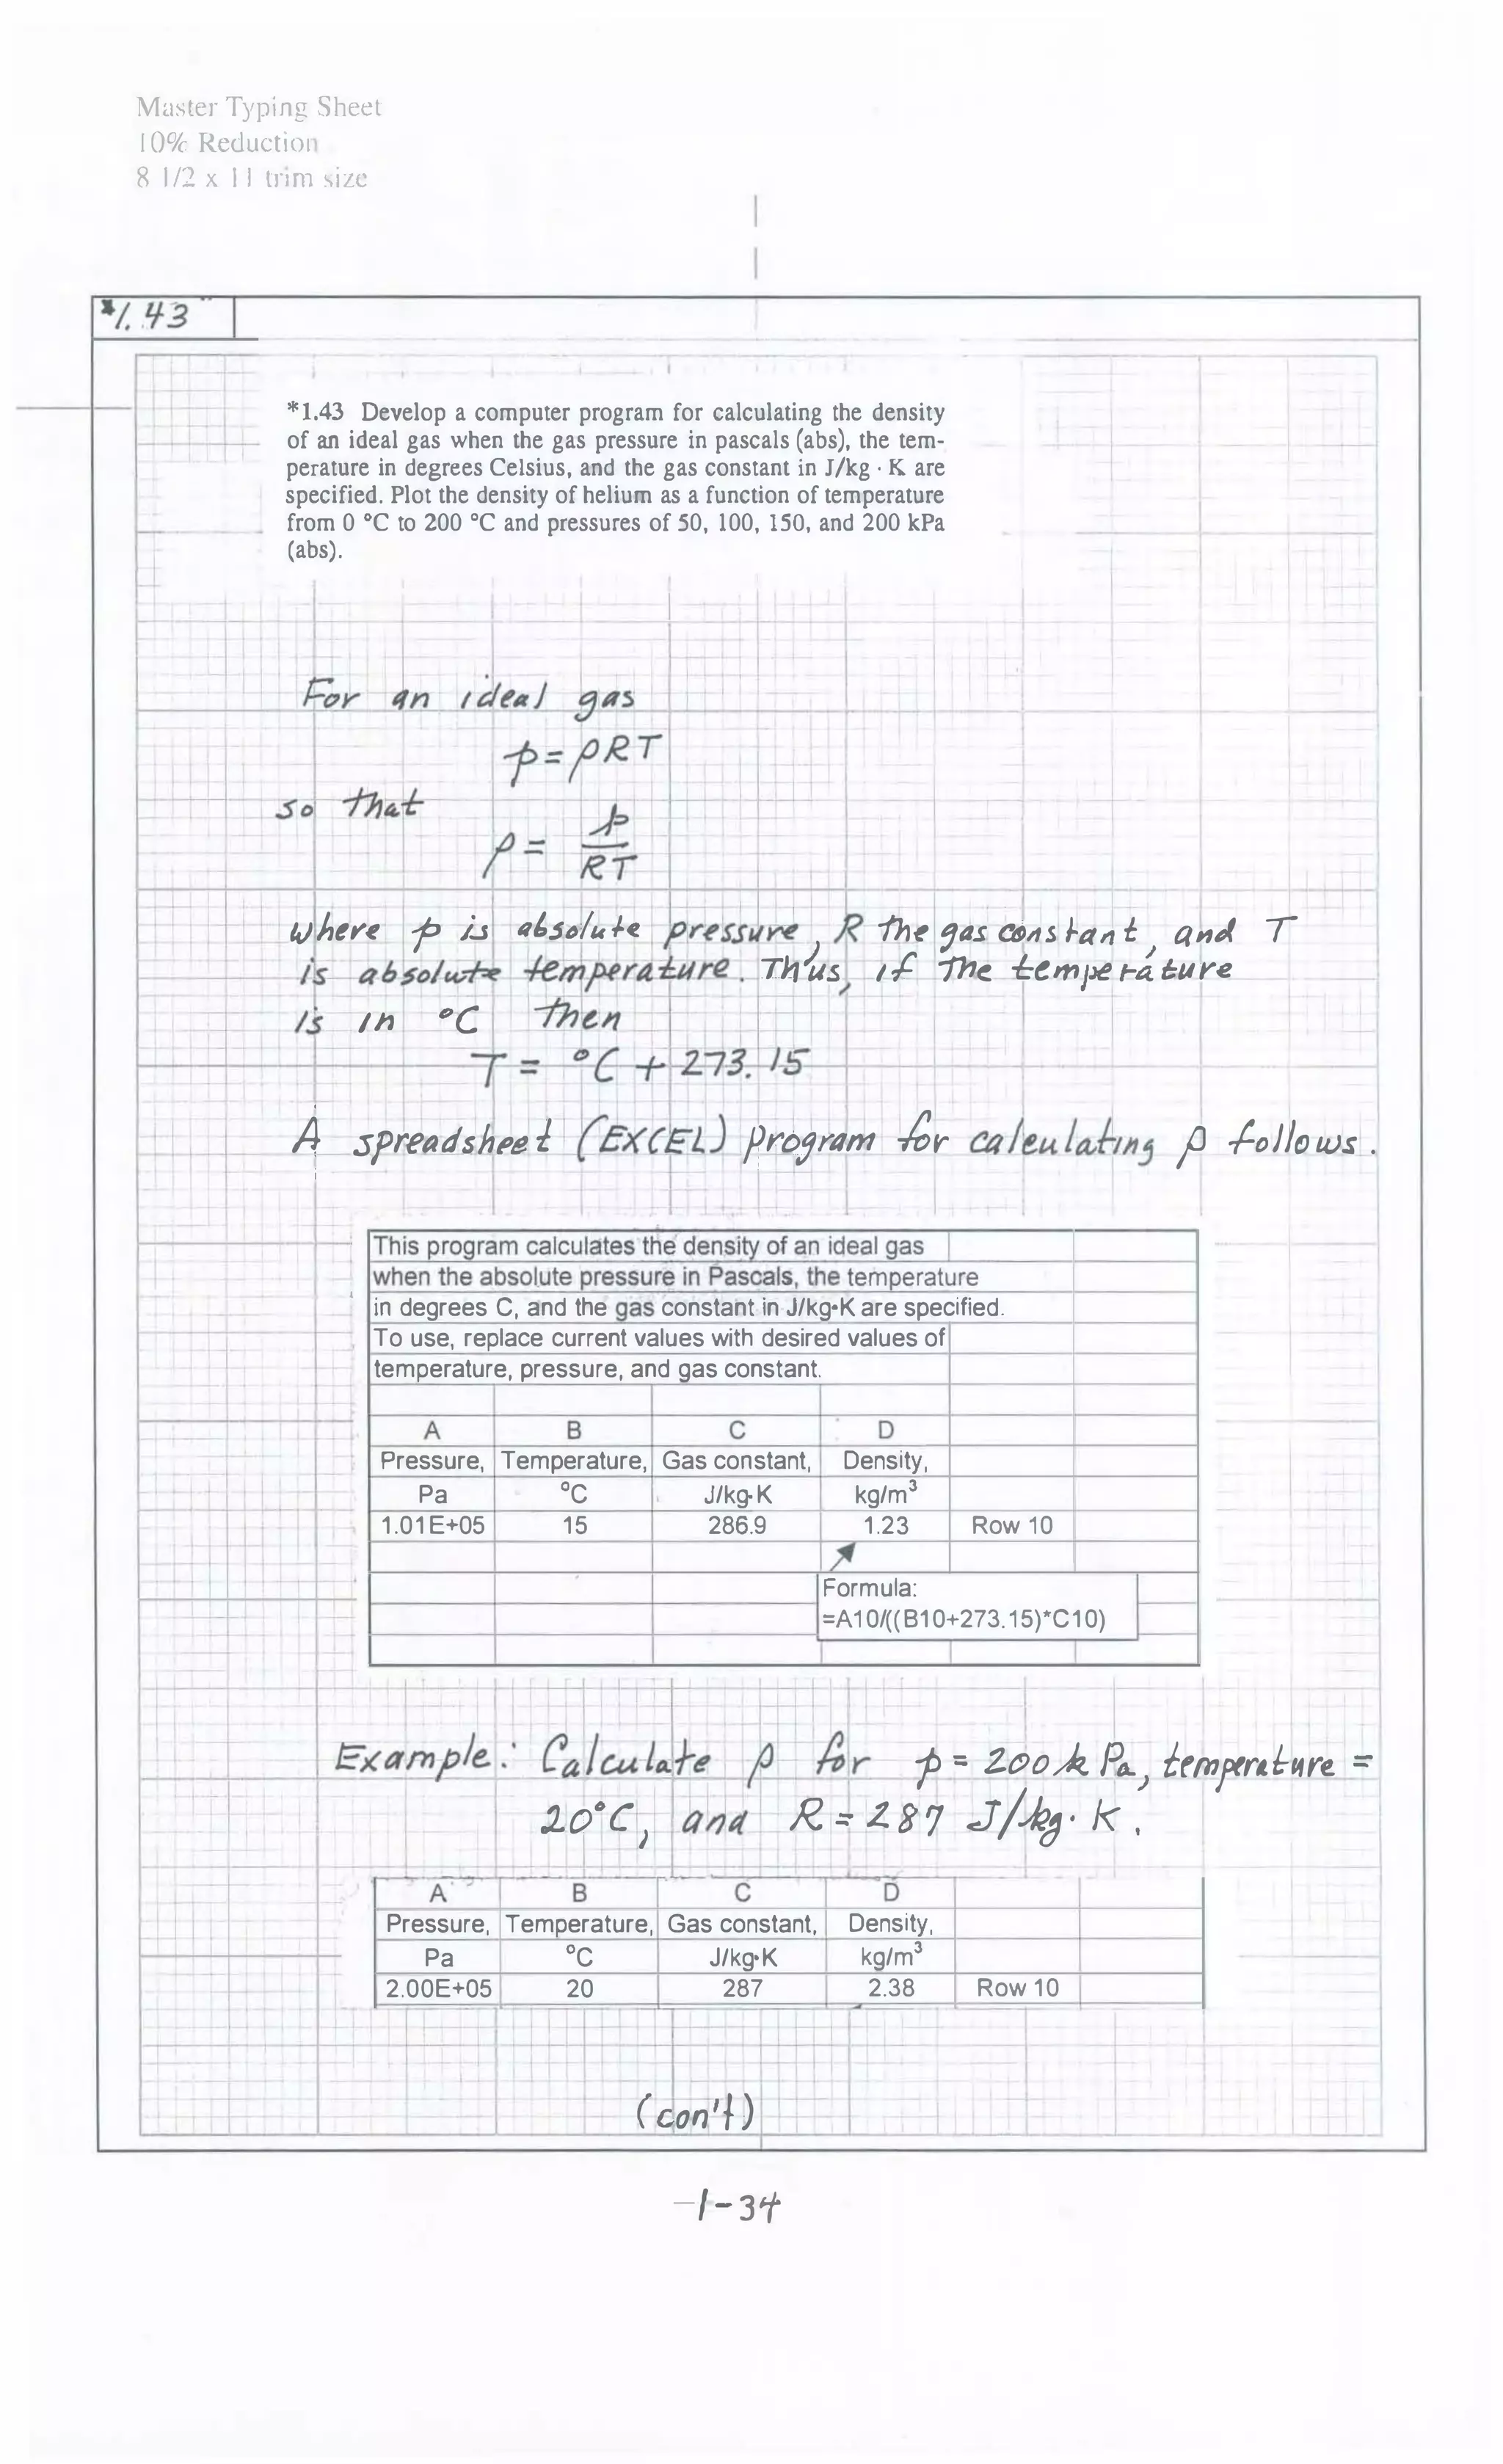 Master Typing Sheet
10% Reduction
8 1/2 x 11 trim size
*1.43
*1.43 Develop a computer program for calculating the density
of an ideal gas when the gas pressure in pascals (abs), the tem-
perature in degrees Celsius, and the gas constant in J/kg · K are
specified. Plot the density of helium as a function of temperature
from 0 °C to 200 °C and pressures of 50, 100, 150, and 200 kPa
(abs).
For an ideal gas
p = ρRT
so that
ρ = p/RT
where p is absolute pressure, R the gas constant, and T
is absolute temperature. Thus, if the temperature
is in °C then
T = °C + 273.15
A spreadsheet (EXCEL) program for calculating ρ follows.
This program calculates the density of an ideal gas
when the absolute pressure in Pascals, the temperature
in degrees C, and the gas constant in J/kg·K are specified.
To use, replace current values with desired values of
temperature, pressure, and gas constant.
A B C D
Pressure, Temperature, Gas constant, Density,
Pa °C J/kg·K kg/m³
1.01E+05 15 286.9 1.23 Row 10
Formula:
=A10/((B10+273.15)*C10)
Example: Calculate ρ for p = 200 kPa, temperature =
20°C, and R = 287 J/kg·K.
A B C D
Pressure, Temperature, Gas constant, Density,
Pa °C J/kg·K kg/m³
2.00E+05 20 287 2.38 Row 10
(con't)
1-34